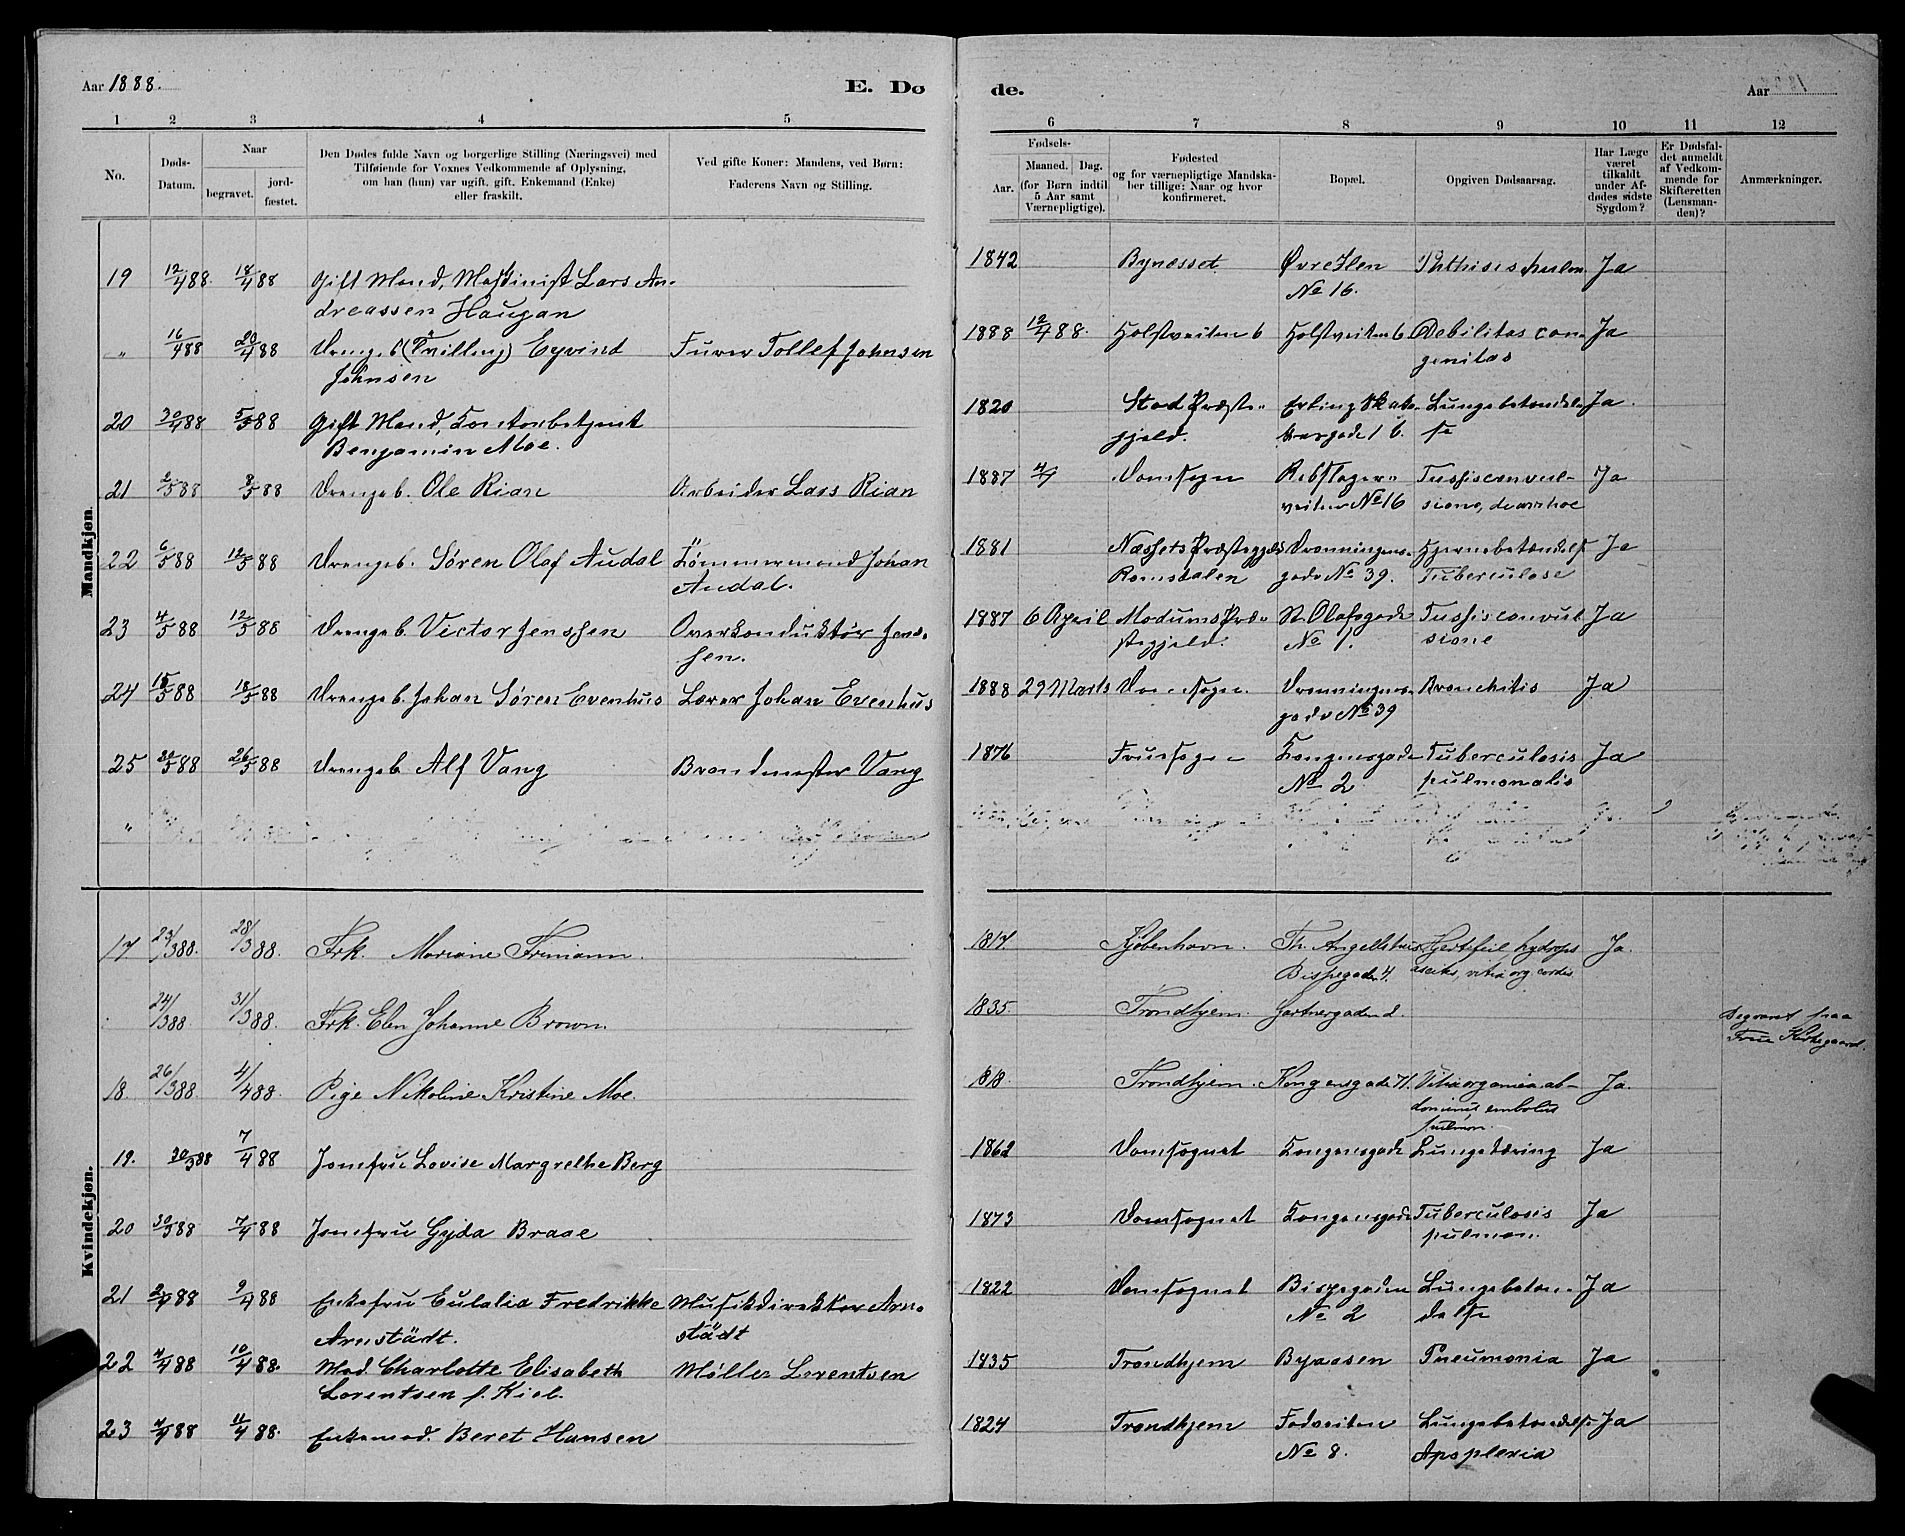 Aar 1888.
E. Dø
de.
Aar
1 2 3 4 5 6 7 8 9 10 11 12
No.
Døds-
Datum.
Naar
begravet.
jord-
fæstet.
Den Dødes fulde Navn og borgerlige Stilling (Næringsvei) med
Tilføiende for Voxnes Vedkommende af Oplysning,
om han (hun) var ugift, gift, Enkemand (Enke)
eller fraskilt.
Ved gifte Koner: Mandens, ved Børn:
Faderens Navn og Stilling.
Fødsels-
Aar.
Maaned. Dag.
(for Børn indtil
5 Aar samt
Værnepligtige).
Fødested
og for værnepligtige Mandska-
ber tillige: Naar og hvor
konfirmeret.
Bopæl.
Opgiven Dødsaarsag.
Har Læge
været
tilkaldt
under Af-
dødes sidste
Sygdom?
Er Dødsfal-
det anmeldt
af Vedkom-
mende for
Skifteretten
(Lensman-
den)?
Anmærkninger.
Mandkjøn.
19 12/4 88. 18/4 88 Gift Mand, Maskinist Lars An- 1842 Bynesset Øvre Ilen Phthisis pulm Ja
dreassen Haugan No 16.
" 16/4 88 20/4 88 Drengeb. (Tvilling) Eyvind Furer Tollef Johnsen 1888 12/4 88. Holstveiten 6 Holstveiten 6 Debilitas con- Ja
Johnsen genitas
20 30/4 88 5/5 88 Gift Mand, Kontorbetjent 1820 Stod Præste- Erling Skakke- Lungebetændel- Ja
Benjamin Moe. gjeld. gade 1 b. se
21 2/5 88 8/5 88 Drengeb. Ole Rian Arbeider Lars Rian 1887 4/9 Domsogn Rebslager- Tussis convul- Ja
veiten No 16 sione, diarrhoe
22 6/5 88 12/5 88 Drengeb. Søren Olaf Audal Tømmermand Johan 1881 Næssets Præstegjeld Dronningens- Hjernebetændelse Ja
Audal. Romsdalen gade No 39. Tuberculose
23 4/5 88 12/5 88 Drengeb. Victor Jenssen Overkonduktør Jens- 1887 6 April Modums Præ- St. Olafsgade Tussis convul Ja
sen. stegjeld. No 1. sione
24 15/5 88 18/5 88 Drengeb. Johan Søren Evenhus Lærer Johan Evenhus 1888 29 Marts Domsogn Dronningens- Bronchitis Ja
gade No 39
25 20/5 88 26/5 88 Drengeb. Alf Vang Brandmester Vang 1876 Fruesogn Kongensgade Tuberculosis Ja
No 2 pulmonalis
"
Kvindekjøn.
17 23/3 88. 28/3 88. Frk. Mariane Frimann. 1817 Kjøbenhavn. Th. Angells hus Hjertefeil, hydrops Ja.
Bispegaden 4. ascites, vitia org. cordis
24/3 88 31/3 88. Frk. Elen Johanne Brown. 1835. Trondhjem. Gartnergaden 2. Begravet paa
Frue Kirkegaard.
18. 26/3 88. 4/4 88. Pige Nikoline Kristine Moe. 1818. Trondhjem. Kongensgade 71. Vitia organica ab- Ja.
dominis embolus
pulmon.
19. 30/3 88 7/4 88 Jomfru Lovise Margrethe Berg 1862 Domsognet Kongensgade Lungetæring Ja
20 30/3 88 7/4 88 Jomfru Gyda Braae 1873 Domsognet Kongensgade Tuberculosis Ja
pulmon.
21 2/4 88 9/4 88 Enkefru Eulalia Fredrikke Musikdirektør Arn- 1822 Domsognet Bispegaden Lungebetæn- Ja
Arnstädt. städt No 2 delse
22 4/4 88 10/4 88. Mad. Charlotte Elisabeth Møller Lorentsen 1835 Trondhjem Byaasen Pneumonia Ja
Lorentsen f. Kiel.
23 4/4 88 11/4 88. Enkemad. Beret Hansen 1824 Trondhjem Fodveiten Lungebetændelse Ja
No 8. Apoplexia